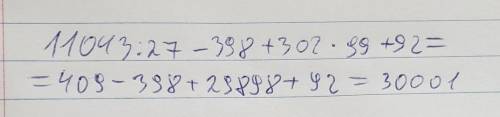 11043:27-398+302·99+92=
=409-398+29898+92=30001